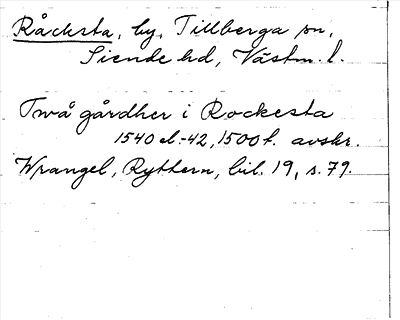 Råcksta, by, Tillberga sn,
Siende hd, Västm. l.
Två gårdher i Rockesta
1540 el.-42, 1500 t. avskr.
Wrangel, Ryttern, bil. 19, s. 79.